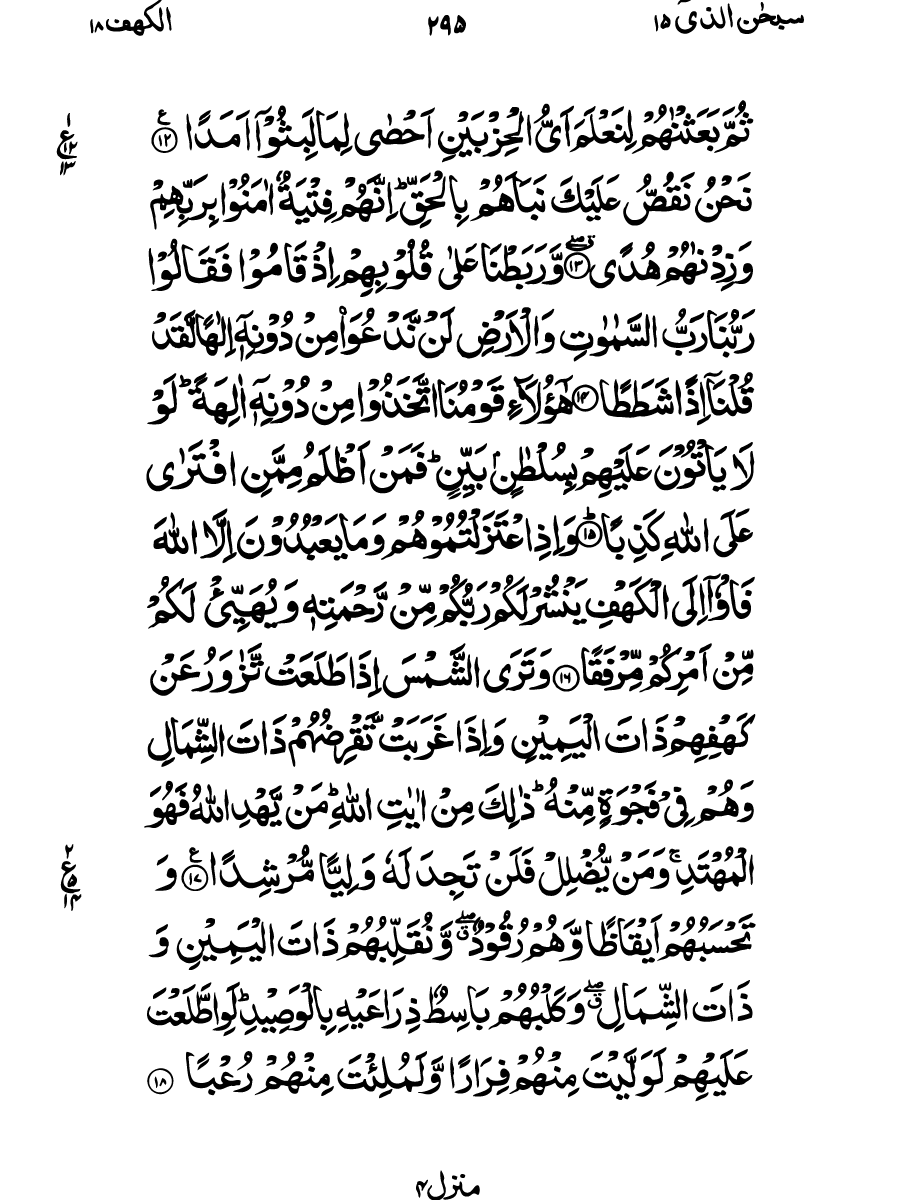 سبحٰن الذیٓ ۱۵
۲۹۵
الكهف ۱۸
ثُمَّ بَعَثْنٰهُمْ لِنَعْلَمَ اَیُّ الْحِزْبَیْنِ اَحْصٰی لِمَا لَبِثُوْۤا اَمَدًا ۠ ﴿۱۲﴾
نَحْنُ نَقُصُّ عَلَیْكَ نَبَاَهُمْ بِالْحَقِّ ؕ اِنَّهُمْ فِتْیَةٌ اٰمَنُوْا بِرَبِّهِمْ
وَ زِدْنٰهُمْ هُدًی ﴿ۖ۱۳﴾ وَّ رَبَطْنَا عَلٰی قُلُوْبِهِمْ اِذْ قَامُوْا فَقَالُوْا
رَبُّنَا رَبُّ السَّمٰوٰتِ وَ الْاَرْضِ لَنْ نَّدْعُوَا۠ مِنْ دُوْنِهٖۤ اِلٰهًا لَّقَدْ
قُلْنَاۤ اِذًا شَطَطًا ﴿۱۴﴾ هٰۤؤُلَآءِ قَوْمُنَا اتَّخَذُوْا مِنْ دُوْنِهٖۤ اٰلِهَةً ؕ لَوْ
لَا یَاْتُوْنَ عَلَیْهِمْ بِسُلْطٰنٍۭ بَیِّنٍ ؕ فَمَنْ اَظْلَمُ مِمَّنِ افْتَرٰی
عَلَی اللهِ كَذِبًا ﴿ؕ۱۵﴾ وَ اِذِ اعْتَزَلْتُمُوْهُمْ وَ مَا یَعْبُدُوْنَ اِلَّا اللهَ
فَاْوٗۤا اِلَی الْكَهْفِ یَنْشُرْ لَكُمْ رَبُّكُمْ مِّنْ رَّحْمَتِهٖ وَ یُهَیِّئْ لَكُمْ
مِّنْ اَمْرِكُمْ مِّرْفَقًا ﴿۱۶﴾ وَ تَرَی الشَّمْسَ اِذَا طَلَعَتْ تَّزٰوَرُ عَنْ
كَهْفِهِمْ ذَاتَ الْیَمِیْنِ وَ اِذَا غَرَبَتْ تَّقْرِضُهُمْ ذَاتَ الشِّمَالِ
وَ هُمْ فِیْ فَجْوَةٍ مِّنْهُ ؕ ذٰلِكَ مِنْ اٰیٰتِ اللهِ ؕ مَنْ یَّهْدِ اللهُ فَهُوَ
الْمُهْتَدِ ۚ وَ مَنْ یُّضْلِلْ فَلَنْ تَجِدَ لَهٗ وَلِیًّا مُّرْشِدًا ۠ ﴿۱۷﴾ وَ
تَحْسَبُهُمْ اَیْقَاظًا وَّ هُمْ رُقُوْدٌ ۖۗ وَّ نُقَلِّبُهُمْ ذَاتَ الْیَمِیْنِ وَ
ذَاتَ الشِّمَالِ ۖۗ وَ كَلْبُهُمْ بَاسِطٌ ذِرَاعَیْهِ بِالْوَصِیْدِ ؕ لَوِ اطَّلَعْتَ
عَلَیْهِمْ لَوَلَّیْتَ مِنْهُمْ فِرَارًا وَّ لَمُلِئْتَ مِنْهُمْ رُعْبًا ﴿۱۸﴾
۱
ع
۱۲
۱۳
۲
ع
۵
۱۴
منزل ۴